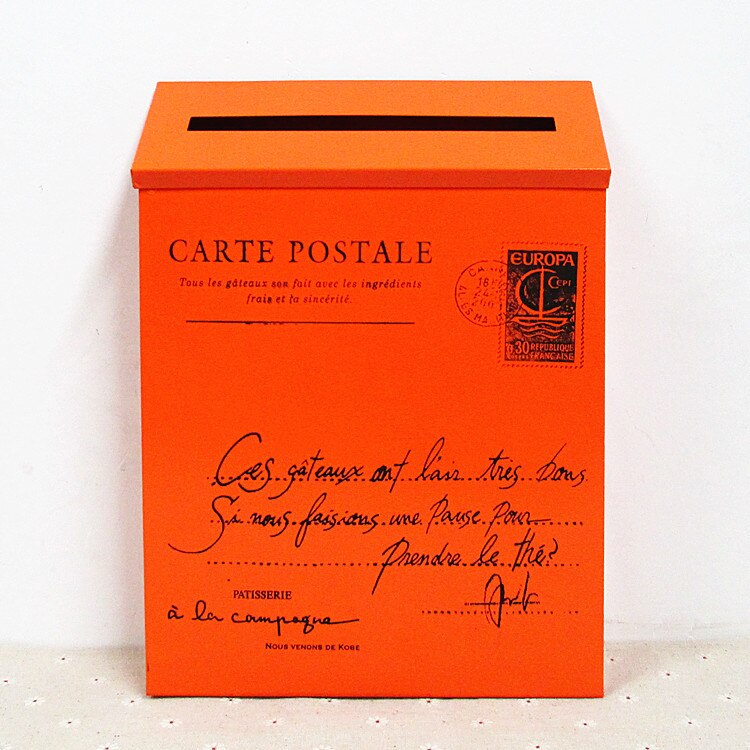 CARTE POSTALE
Tous les gâteaux son fait avec les ingrédients
frais et la sincérité.
EUROPA
CEPT
0,30 REPUBLIQUE
POSTES FRANÇAISE
Ces gâteaux ont l'air très bons
Si nous faisions une Pause Pour
Prendre le thé?
PATISSERIE
à la campagne
NOUS VENONS DE KOBE